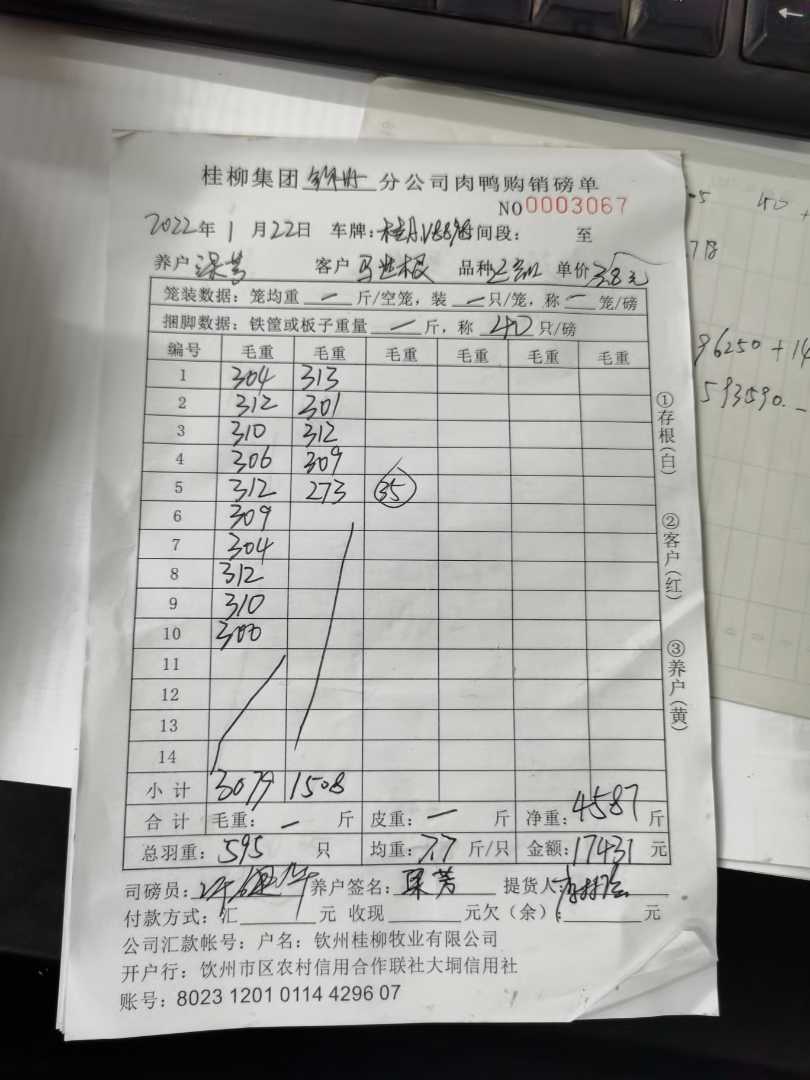 桂柳集团 分公司肉鸭购销磅单
NO 0003067
2022年 1 月 22日 车牌: 时间段: 至
养户 梁芳 客户 马世根 品种 单价 3.8元
笼装数据: 笼均重 一 斤/空笼, 装 一 只/笼, 称 一 笼/磅
捆脚数据: 铁筐或板子重量 一 斤, 称 40 只/磅
编号 毛重 毛重 毛重 毛重 毛重 毛重
1 304 313
2 312 301
3 310 312
4 306 309
5 312 273 35
6 309
7 304
8 312
9 310
10 300
11
12
13
14
小计 3079 1508
合计 毛重: 一 斤 皮重: 一 斤 净重: 4587 斤
总羽重: 595 只 均重: 7.7 斤/只 金额: 17431 元
司磅员: 养户签名: 梁芳 提货人:
付款方式: 汇 元 收现 元欠(余): 元
公司汇款帐号: 户名: 钦州桂柳牧业有限公司
开户行: 钦州市区农村信用合作联社大垌信用社
账号: 8023 1201 0114 4296 07
①存根(白)
②客户(红)
③养户(黄)
96250 + 14
593590.